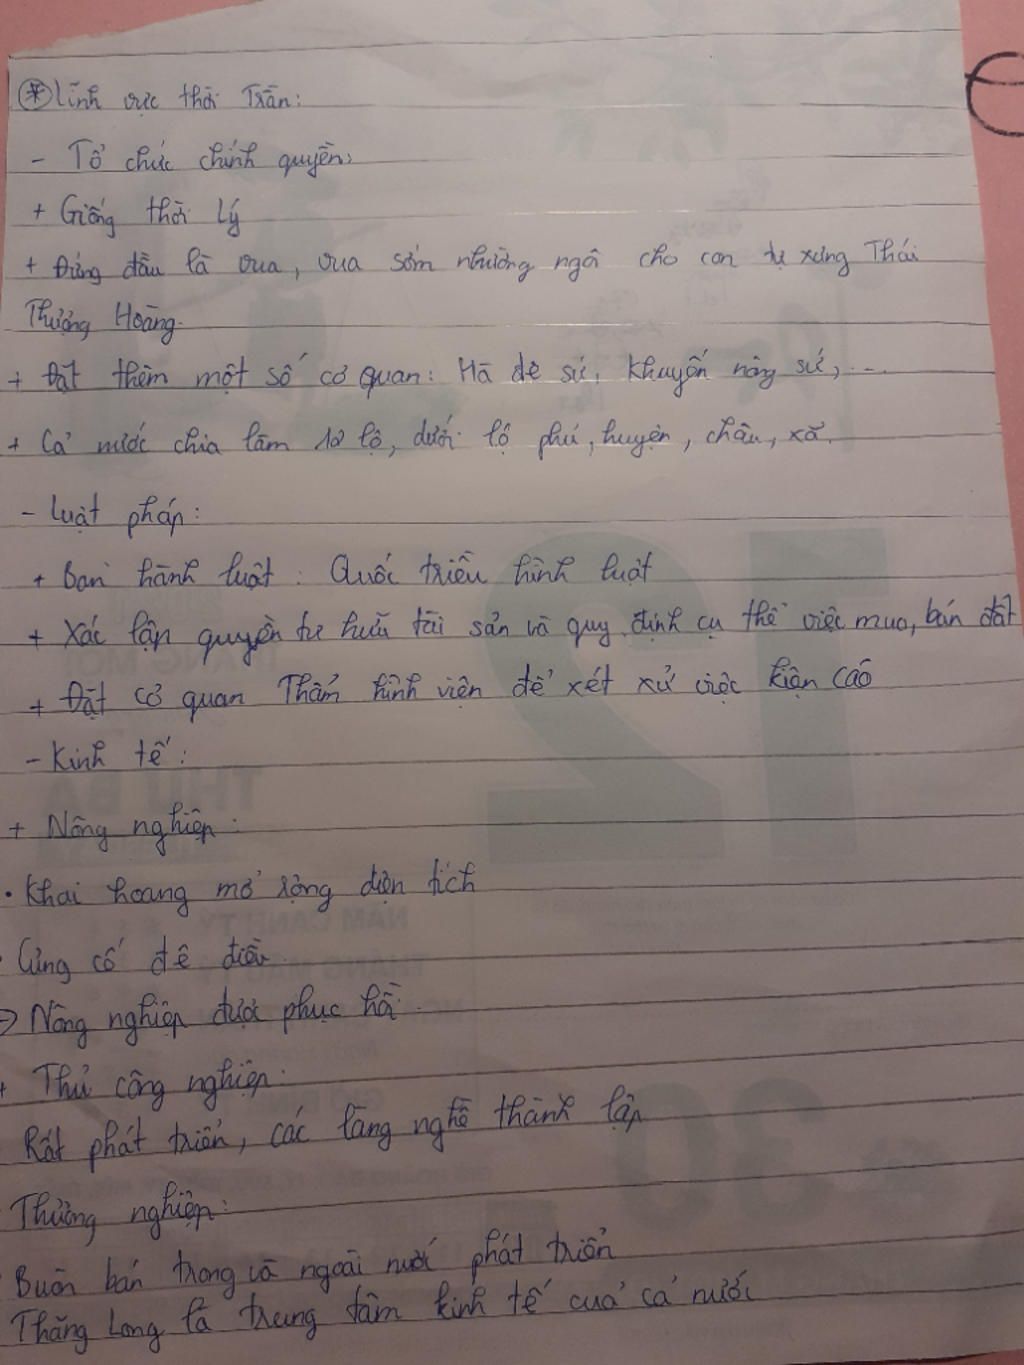 * Lĩnh vực thời Trần:
- Tổ chức chính quyền:
+ Giống thời Lý
+ Đứng đầu là vua, vua sớm nhường ngôi cho con tự xưng Thái
Thượng Hoàng.
+ Đặt thêm một số cơ quan: Hà đê sứ, khuyến nông sứ,...
+ Cả nước chia làm 12 lộ, dưới lộ phủ, huyện, châu, xã.
- Luật pháp:
+ Ban hành luật: Quốc triều hình luật
+ Xác lập quyền tư hữu tài sản và quy định cụ thể việc mua, bán đất
+ Đặt cơ quan Thẩm hình viện để xét xử việc kiện cáo
- Kinh tế:
+ Nông nghiệp:
. Khai hoang mở rộng diện tích
. Củng cố đê điều.
=> Nông nghiệp được phục hồi.
+ Thủ công nghiệp:
Rất phát triển, các làng nghề thành lập
Thương nghiệp:
Buôn bán trong và ngoài nước phát triển
Thăng Long là trung tâm kinh tế của cả nước